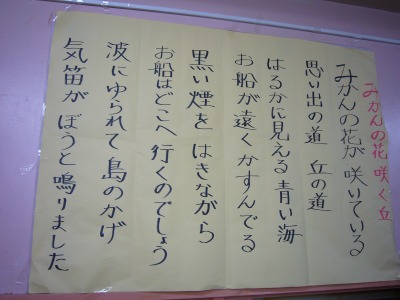 みかんの花 咲く丘
みかんの花が 咲いている
思い出の道 丘の道
はるかに見える 青い海
お船が遠く かすんでる
黒い煙を はきながら
お船はどこへ 行くのでしょう
波にゆられて 島のかげ
気笛が ぼうと 鳴りました